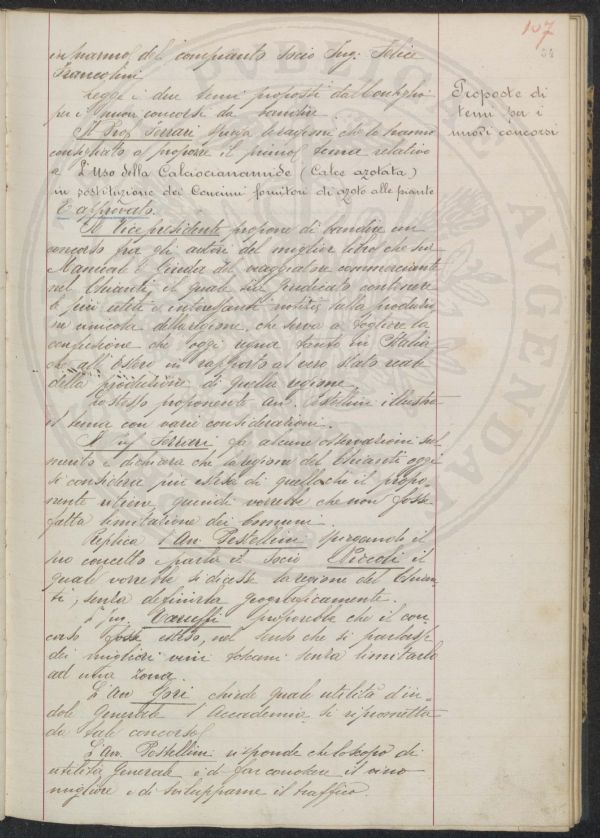 107
34
in marmo del compianto socio Ing: Felice
Francolini
Proposte di
temi per i
nuovi concorsi
Legge i due temi proposti dal Consiglio
per i nuovi concorsi da bandire.
Il Prof Ferrari spiega le ragioni che lo hanno
consigliato a proporre il primo tema relativo
a L'Uso della Calciocianamide (Calce azotata)
in sostituzione dei Concimi fornitori di azoto alle piante
È approvato.
Il Vice presidente propone di bandire un
concorso fra gli autori del miglior libro che sia
Manuale e Guida del viaggiatore commerciante
nel Chianti, il quale sia giudicato contenere
le più utili e interessanti notizie sulla produzio
ne vinicola della regione, che serva a togliere la
confusione che oggi regna tanto in Italia
che all'Estero in rapporto al vero stato reale
della produzione di quella regione.
Lo stesso proponente avv. Pestellini illustra
il tema con varie considerazioni.
Il Ferrari fa alcune osservazioni sul
merito e dichiara che la regione del Chianti oggi
si considera più estesa di quello che il propo-
nente ritiene, quindi vorrebbe che non fosse
fatta limitazione dei Comuni.
Replica l'avv. Pestellini spiegando il
suo concetto e parla il socio Piccoli il
quale vorrebbe si dicesse la regione del Chian-
ti, senza definirla geograficamente.
L'in. Caruffi proporrebbe che il con
corso fosse esteso, nel senso che si parlasse
dei migliori vini toscani senza limitarlo
ad una zona.
L'avv Gori chiede quale utilità d'in-
dole generale l'Accademia si riprometta
da tale concorso.
L'avv. Pestellini risponde che lo scopo di
utilità generale è di far conoscere il vino
migliore e di svilupparne il traffico.